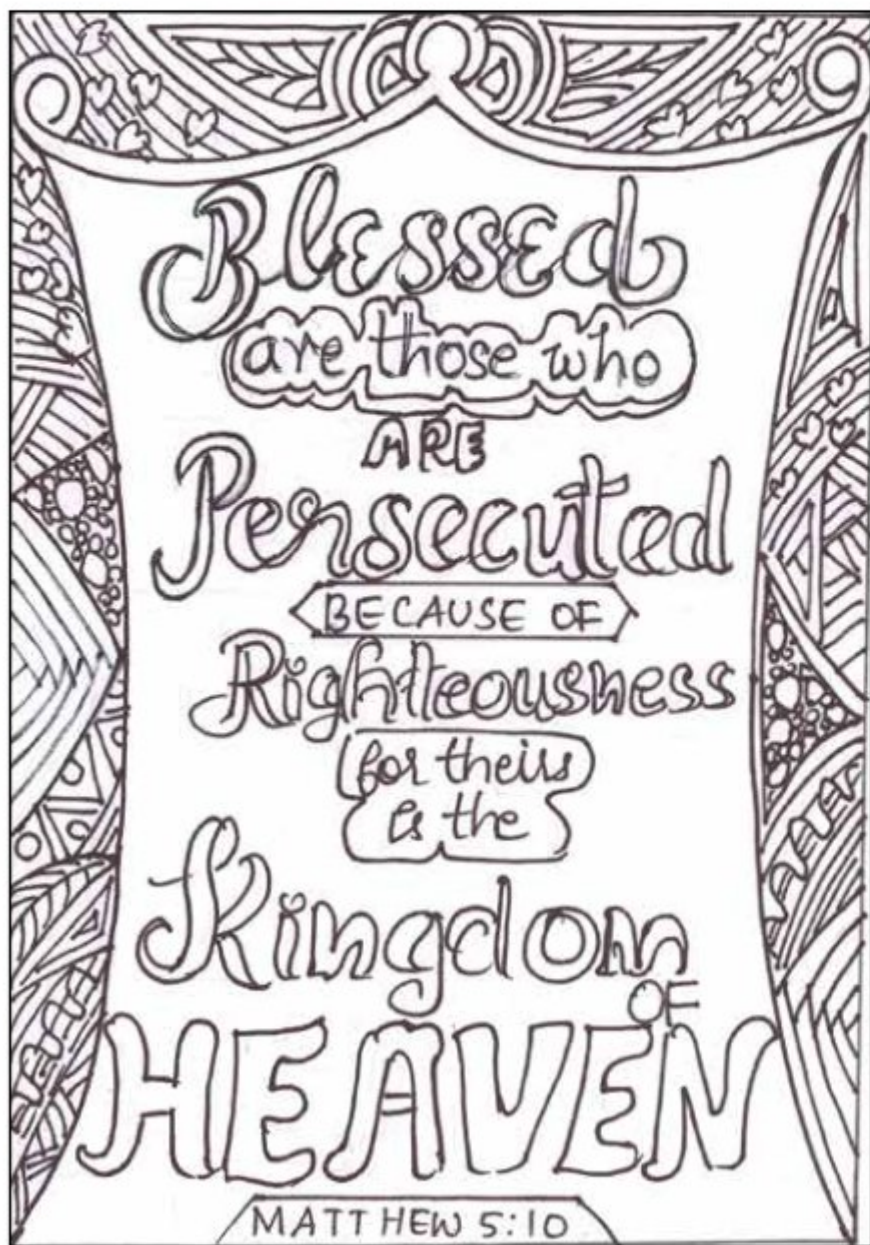 Blessed
are those who
ARE
Persecuted
BECAUSE OF
Righteousness
for theirs
is the
Kingdom
OF
HEAVEN
MATTHEW 5:10